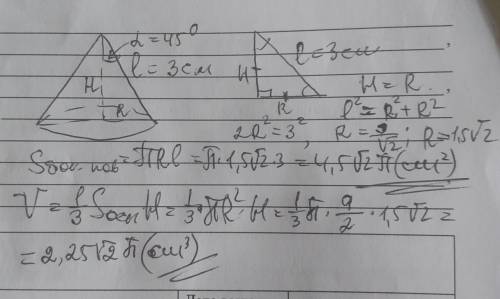 α = 45°
l = 3 см
H
R
l = 3 см
H
R
H = R.
l² = R² + R²
2R² = 3², R = 9/√2; R = 1,5√2
Sбок. пов = πRl = π · 1,5√2 · 3 = 4,5√2 π (см²)
V = 1/3 Sосн H = 1/3 · πR² · H = 1/3 π · 9/2 · 1,5√2 =
= 2,25√2 π (см³)